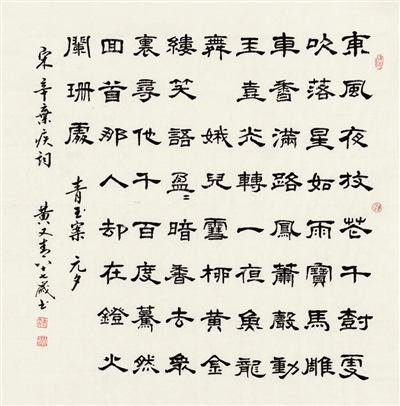 東風夜放花千樹更
吹落星如雨寶馬雕
車香滿路鳳簫聲動
玉壺光轉一夜魚龍
舞 娥兒雪柳黃金
縷笑語盈〻暗香去眾
裏尋他千百度驀然
回首那人却在鐙火
闌珊處 青玉案 元夕
宋辛棄疾詞 黃又青八十七歲書